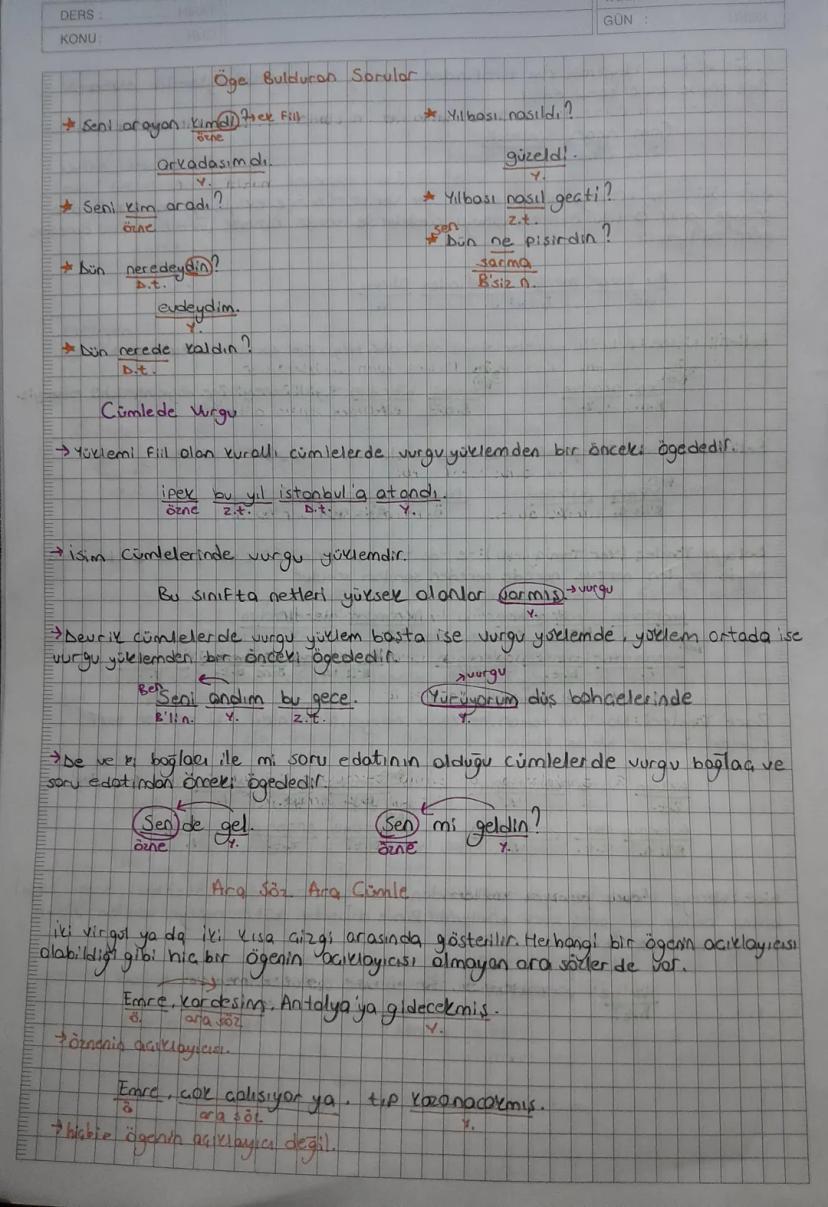 DERS :
GÜN :
KONU:
Öge Bulduran Sorular
* Seni arayan kimdi? → ek fiil
özne
arkadaşımdı.
Y.
* Seni kim aradı?
özne
* Dün neredeydin?
D.t.
evdeydim.
Y.
* Dün nerede kaldın?
D.t.
* Yılbaşı nasıldı?
güzeldi.
Y.
* Yılbaşı nasıl geçti?
z.t.
sen
* Dün ne pişirdin?
sarma
B'siz n.
Cümlede Vurgu
→ Yüklemi fiil olan kurallı cümlelerde vurgu yüklemden bir önceki ögededir.
ipek bu yıl istanbul'a atandı.
özne z.t. D.t. Y.
→ isim cümlelerinde vurgu yüklemdir.
Bu sınıfta netleri yüksek olanlar varmış → vurgu
Y.
→ Devrik cümlelerde vurgu yüklem başta ise vurgu yüklemde, yüklem ortada ise
vurgu yüklemden bir önceki ögededir.
Ben Seni andım bu gece.
B'li n. Y. z.t.
→ vurgu
Yürüyorum düş bahçelerinde
Y.
→ De ve ki bağlacı ile mi soru edatının olduğu cümlelerde vurgu bağlaç ve
soru edatından önceki ögededir.
Sen de gel. Sen mi geldin?
özne Y. özne Y.
Ara Söz Ara Cümle
iki virgül ya da iki kısa çizgi arasında gösterilir. Herhangi bir ögenin açıklayıcısı
olabildiği gibi hiç bir ögenin açıklayıcısı olmayan ara sözler de var.
Emre, kardeşim, Antalya'ya gidecekmiş.
ö. ara söz Y.
→ öznenin açıklayıcısı.
Emre, çok çalışıyor ya, tıp kazanacakmış.
ö ara söz Y.
→ hiçbir ögenin açıklayıcı değil.